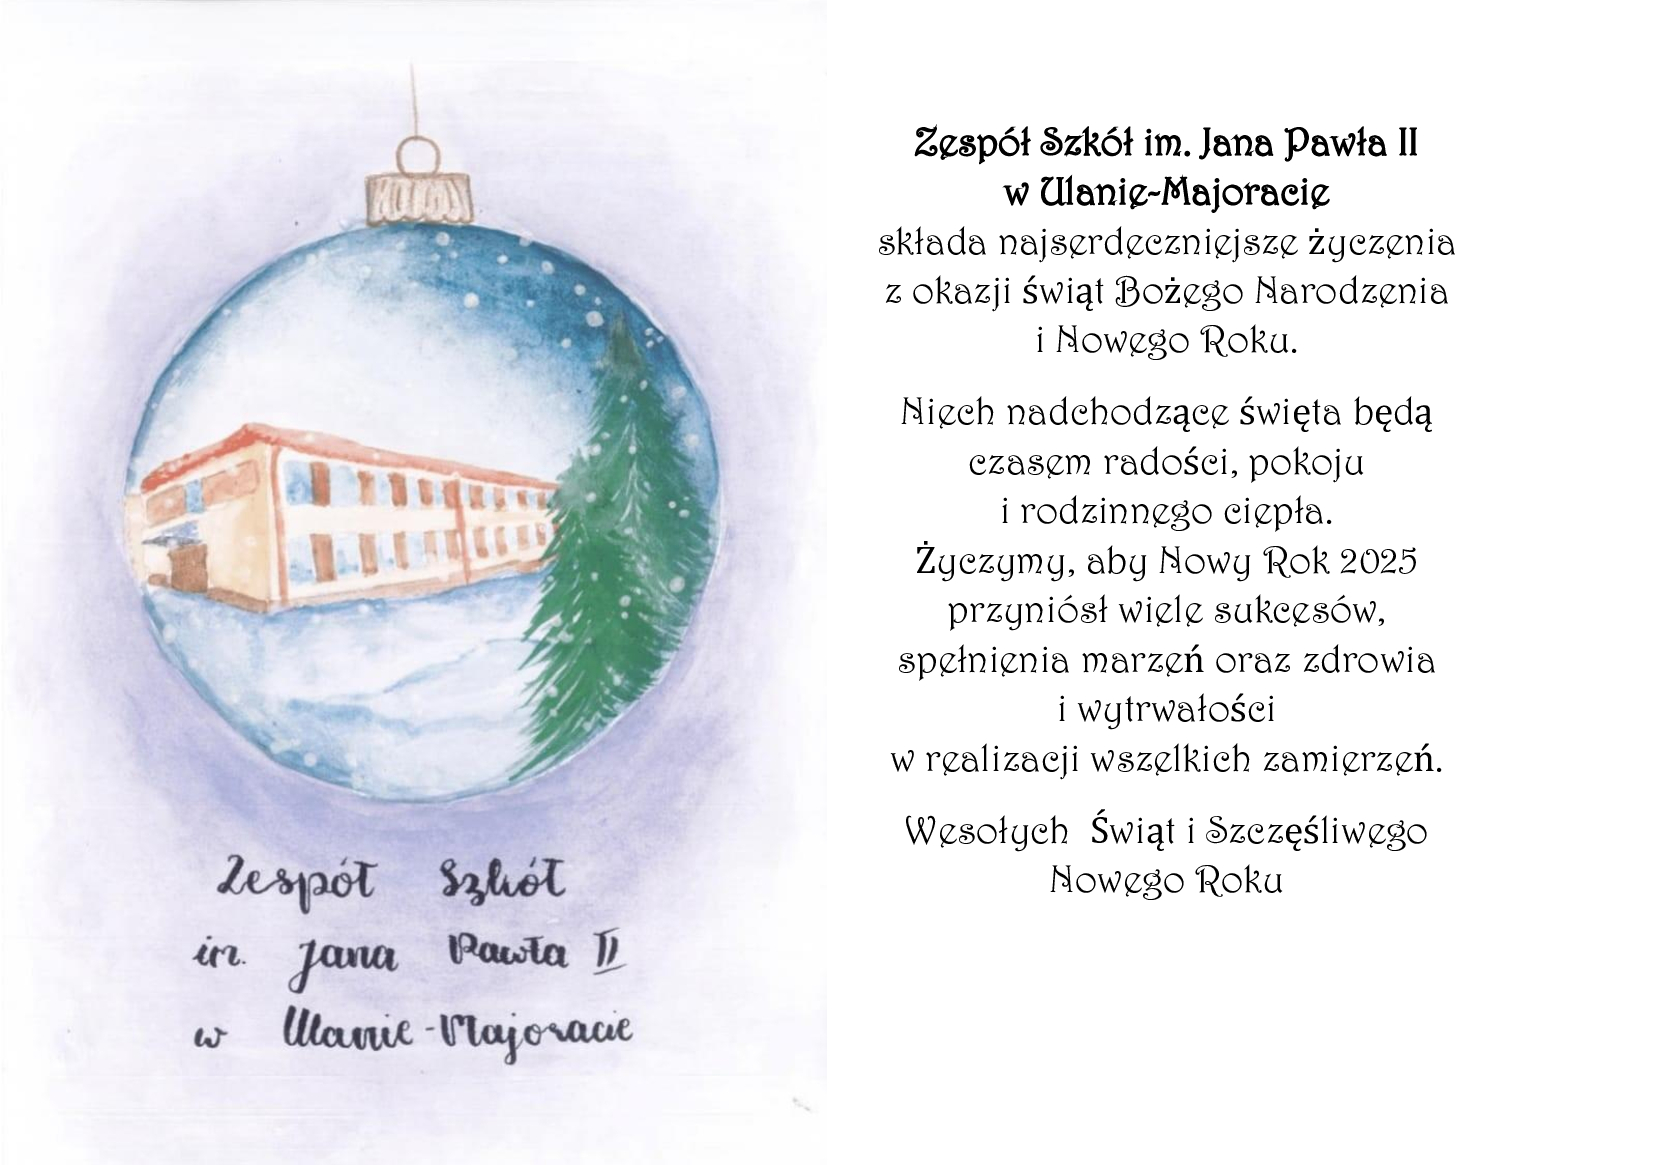 Zespół Szkół
im. Jana Pawła II
w Ulanie-Majoracie
Zespół Szkół im. Jana Pawła II
w Ulanie-Majoracie
składa najserdeczniejsze życzenia
z okazji świąt Bożego Narodzenia
i Nowego Roku.
Niech nadchodzące święta będą
czasem radości, pokoju
i rodzinnego ciepła.
Życzymy, aby Nowy Rok 2025
przyniósł wiele sukcesów,
spełnienia marzeń oraz zdrowia
i wytrwałości
w realizacji wszelkich zamierzeń.
Wesołych Świąt i Szczęśliwego
Nowego Roku